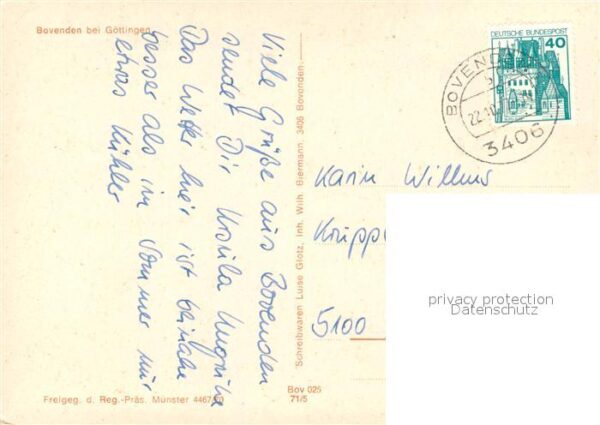 Bovenden bei Göttingen
Viele Grüße aus Bovenden
sendet Dir Ursula
Das Wetter hier ist beinahe
besser als im Sommer nur
etwas kühler
Schreibwaren Luise Glotz, Inh. Wilh. Biermann, 3406 Bovenden.
DEUTSCHE BUNDESPOST
40
BOVENDEN
22.10.
3406
Karin Willms
Krupp
5100
privacy protection
Datenschutz
Bov 025
71/5
Freigeg. d. Reg.-Präs. Münster 4467/70